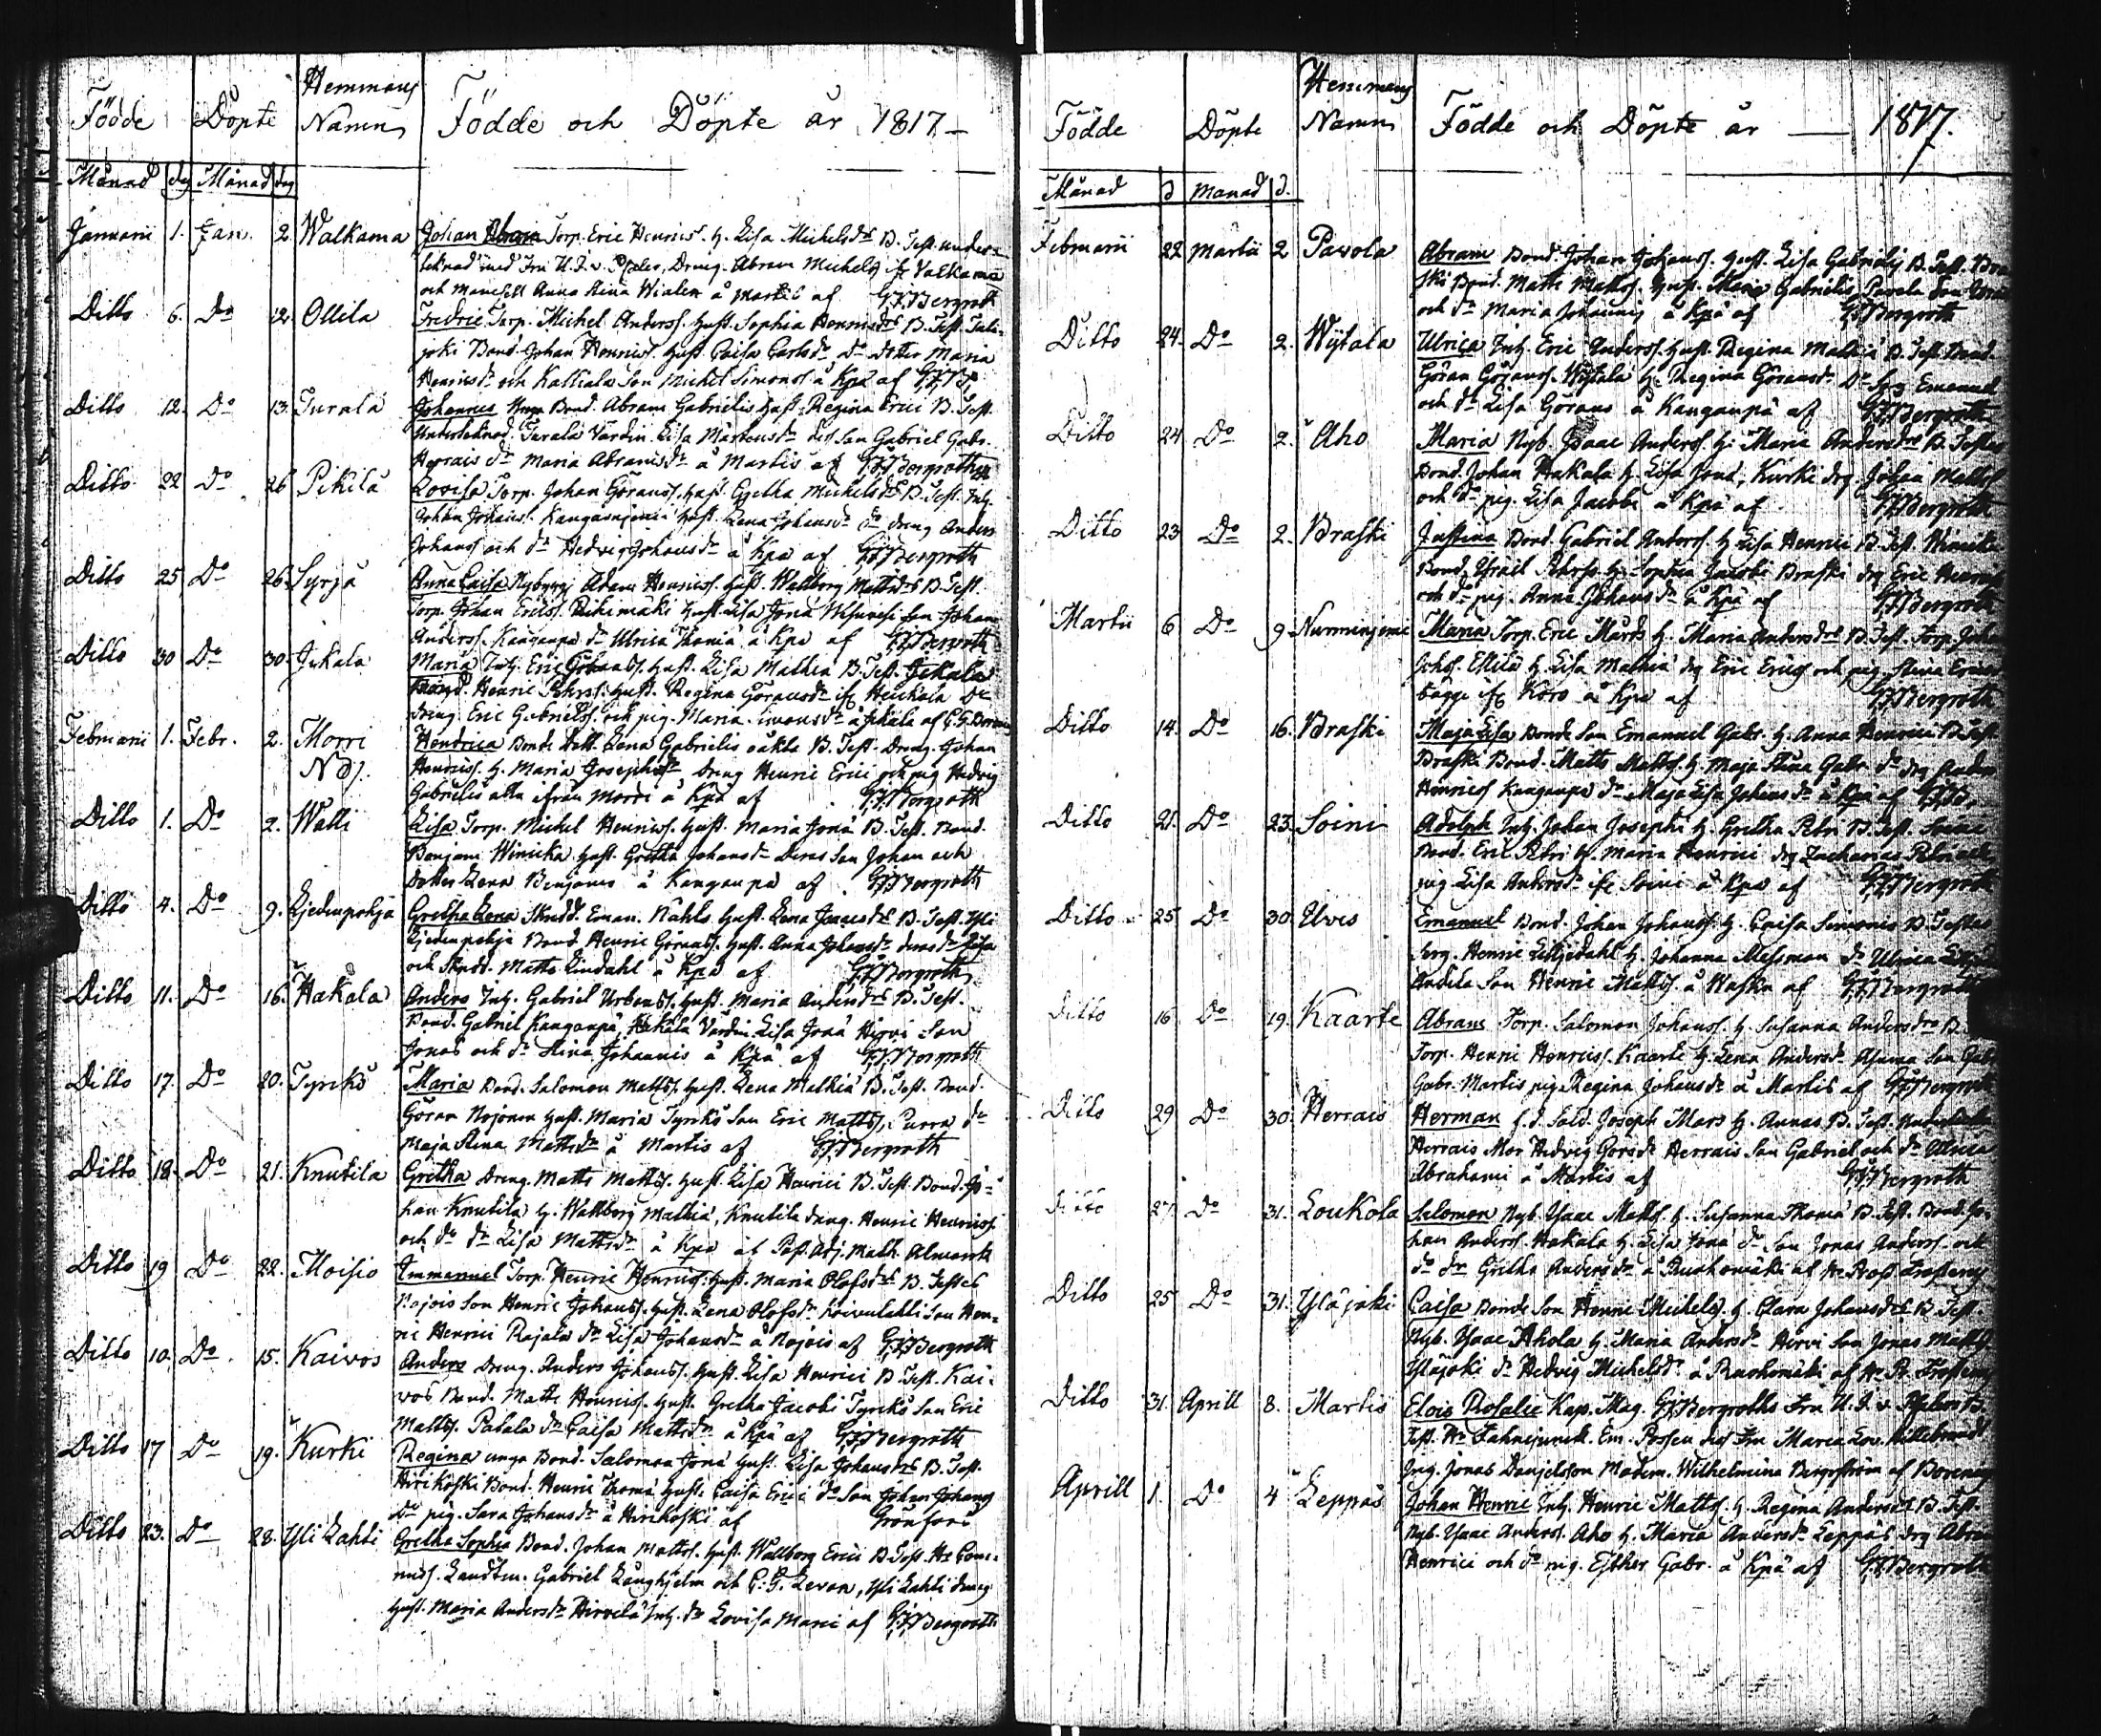 Födde Döpte Hemmans Namn Födde och Döpte år 1817
Månad dag Månad dag
Januarii 1. Jan. 2. Walkama Johan Abram Torp. Eric Henriss. H. Lisa Michelsdr B. Test. under-
teknad med Fru U. J. v. Dreng. Abram Michels fr Valkama
och Mamsell Anna Stina Wialen å Martis af GFBergroth
Ditto 6. Do 12 Ollila Fredric Torp. Michel Anderss. Hust. Sophia Henrisdr B. Test. Juli-
joki Bond. Johan Henriss. Hust. Caisa Carlsdr Do dotter Maria
Henricsdr och Kalliala Son Michel Simonss å Kpä af GFB.
Ditto 12. Do 13. Turala Johannes Unga Bond. Abram Gabrielis Hust. Regina Erici B. Test.
Underteknad. Turala Värdin. Lisa Mårtensdr des Son Gabriel Gabr.
Herrais dr Maria Abramsdr å Martis af GFBergroth
Ditto 22 Do 26 Pikilä Lovisa Torp. Johan Göranss. Hust. Gretha Michelsdr B. Test. Inh.
Johan Johanss. Kangasniemi Hust. Lena Johansdr Do dreng Anders
Johanss och dr Hedvig Johansdr å Kpä af GFBergroth
Ditto 25 Do 26. Syrjä Anna Caisa Nybygg. Adam Henriss. Hust. Wallborg Mattsdr B. Test.
Torp. Johan Ericss. Riikimäki Hust. Lisa Jona Son Johan
Anderss. Kangaspä dr Ulrica Thomä å Kpä af GFBergroth
Ditto 30 Do 30. Jckala Maria Inh. Eric Johanss. Hust. Lisa Mathiä B. Test. Jckala
Bond. Henric Pehrss. Hust. Regina Göransdr Heickala Do
dreng. Eric Gabrielss. och pig. Maria Simonsdr å Jckala af
Februarii 1. Febr. 2. Morri Hendrica Bonde Dott. Lena Gabrielis oäkta B. Test. Dreng. Johan
Ndj. Henriss. H. Maria Josephsdr Dreng Henric Erici och pig Hedvig
Gabrielis alla ifrån Morri å Kpä af GFBergroth
Ditto 1. Do 2. Walli Lisa Torp. Michel Henriss. Hust. Maria Jonä B. Test. Bond.
Benjam Winicka Hust. Gretha Johansdr Deras Son Johan och
dotter Lena Benjams å Kangaspä af GFBergroth
Ditto 4. Do 9. Ljedenpohja Gretha Lena Skrädd. Eman. Kåhls Hust. Lena Isaacsdr B. Test. Yli
Ljedenpohja Bond Henric Görans. Hust. Anna Johansdr deras dr Lisa
och Skrdd. Matts Lindahl å Kpä af GFBergroth
Ditto 11. Do 16. Hakala Anders Inh. Gabriel Urbanss. Hust. Maria Andersdr B. Test.
Bond. Gabriel Kangaspä, Hakala Värdin Lisa Jonä Hirvi Son
Jonas och dr Stina Johannis å Kpä af GFBergroth
Ditto 17. Do 20. Tyrkö Maria Bond. Salomon Mattss. Hust. Lena Mathiä B. Test. Bond.
Göran Nojonen Hust. Maria Tyrkö Son Eric Mattss, Purra dr
Maja Stina Mattsdr å Martis af GFBergroth
Ditto 18. Do 21. Knutila Gretha Dreng. Matts Mattss. Hust. Lisa Henrici B. Test. Bond. Jo-
han Knutila H. Wallborg Mathiä, Knutila dreng. Henric Henriss
och dr dr Lisa Mattsdr å Kpä af Past. Adj. Math. Almark
Ditto 19 Do 22. Moisio Immanuel Torp. Henric Henriss. Hust. Maria Olofsdr B. Testes
Nojois Son Henric Johanss. Hust. Lena Olofsdr Koivulahti Son Hen-
ric Henrici Rajala dr Lisa Johansdr å Nojois af GFBergroth
Ditto 10. Do 15. Kaivos Anders Dreng. Anders Johanss. Hust. Lisa Henrici B. Test. Kai-
vos Bond. Matts Henriss. Hust. Gretha Jacobi Tyrkö Son Eric
Mattss. Palala dr Caisa Mattsdr å Kpä af GFBergroth
Ditto 17 Do 19. Kurki Regina unga Bond. Salomon Jonä Hust. Lisa Johansdr B. Test.
Hirikoski Bond. Henric Thomä Hust. Caisa Erici Do Son Johan Johanss
Do pig. Sara Johansdr å Hirikoski af Grönfors
Ditto 23. Do 28. Yli Lahti Gretha Sophia Bond. Johan Mattss. Hust. Wallborg Erici B. Test. Hr Com-
miss. Landtm. Gabriel Långhjelm och C. G. Levon, Yli Lahti dreng
Hust. Maria Andersdr Hirvelä Inh. dr Lovisa Marci af GFBergroth
Födde Döpte Hemmans Namn Födde och Döpte år 1817.
Månad d Månad d.
Februarii 22 Martii 2 Pavola Abram Bond. Johan Johanss. Hust. Lisa Gabrielis B. Test. Bra-
ski Bond. Matts Mattss. Hust. Maria Gabrielis Pavola Son
och dr Maria Johannis å Kpä af GFBergroth
Ditto 24. Do 2. Wÿtala Ulrica Inh. Eric Anderss. Hust. Regina Mathiä B. Test. Bond.
Göran Görans. Wÿtala H. Regina Göransdr Do Son Emanuel
och dr Lisa Görans å Kangaspä af GFBergroth
Ditto 24 Do 2. Aho Maria Nyb. Isaac Anderss. H. Maria Andersdr B. Testes
Bond. Johan Hakala H. Lisa Jonä, Kurki drg Johan Mattss
och dr pig. Lisa Jacobi å Kpä af GFBergroth
Ditto 23 Do 2. Braski Justina Bond. Gabriel Anderss. H. Lisa Henrici B. Test.
Bond. Israel Pehrss. H. Sophia Jacobi Braski drg Eric Henriss
och dr pig. Anna Johansdr å Kpä af GFBergroth
Martii 6 Do 9. Nurminjemi Maria Torp. Eric Mårts H. Maria Andersdr B. Test. Torp. Johan
Johss. Ellilä H. Lisa Mathiä drg Eric Ericss och pig Maria
bägge ifr. Koro å Kpä af GFBergroth
Ditto 14. Do 16. Braski Maja Lisa Bonde Son Emanuel Gabr. H. Anna Henrici B. Test.
Braski Bond. Matts Mattss. H. Maja Stina Gabr. dr drg Anders
Henriss Kangaspä dr Maja Lisa Johansdr å Kpä af GFB.
Ditto 21. Do 23. Soini Adolph Inh. Johan Josephi H. Gretha Petri B. Test. Soini
Bond. Eric Petri H. Maria Henrici drg Zacharias Petri och
pig Lisa Andersdr ifr Soini å Kpä af GFBergroth
Ditto 25 Do 30. Elvis Emanuel Bond. Johan Johanss. H. Caisa Simonis B. Testes
Serg. Henric Liljedahl H. Johanna Messman dr Ulrica
Andila Son Henric Mattss. å Waskn af GFBergroth
Ditto 16 Do 19. Kaarte Abram Torp. Salomon Johanss. H. Susanna Andersdr B.
Torp. Henric Henriss. Kaarte H. Lena Andersdr Asuma Son Gab.
Gabr. Martis pig Regina Johansdr å Martis af GFBergroth
Ditto 29 Do 30. Herrais Herman f. d. Sold. Joseph Mars H. Annas B. Test.
Herrais Mor Hedvig Görsdr Herrais Son Gabriel och dr Ulrica
Abrahami å Martis af GFBergroth
Ditto 27. Do 31. Loukola Salomon Nyb. Isaac Mattss. H. Susanna Thomä B. Test. Bond. Jo-
han Anderss. Hakala H. Lisa Jonä dr Son Jonas Anderss. och
do dr Gretha Andersdr å Ruohomäki af Hr Prost
Ditto 25 Do 31. Yläjoki Caisa Bonde Son Henric Michelss. H. Clara Johansdr B. Test.
Nyb. Isaac Akola H. Maria Andersdr Hirvi Son Jonas Mattss
Yläjoki dr Hedvig Michelsdr å Ruohomäki af Hr Pr.
Ditto 31. Aprill 8. Martis Elois Rosalie Kap. Mag. GFBergroths Fru U. J. v. B.
Test. Hr Fahnejunck. Em. Possen des Fru Maria Lov. Hillebrand
Ing. Jonas Danjelsson Madem. Wilhelmina Bergström af Borenius
Aprill 1. Do 4 Leppäs Johan Henric Inh. Henric Mattss. H. Regina Andersdr B. Test.
Nyb. Isaac Anderss. Aho H. Maria Andersdr Leppäs drg Abram
Henrici och dr pig. Esther Gabr. å Kpä af GFBergroth